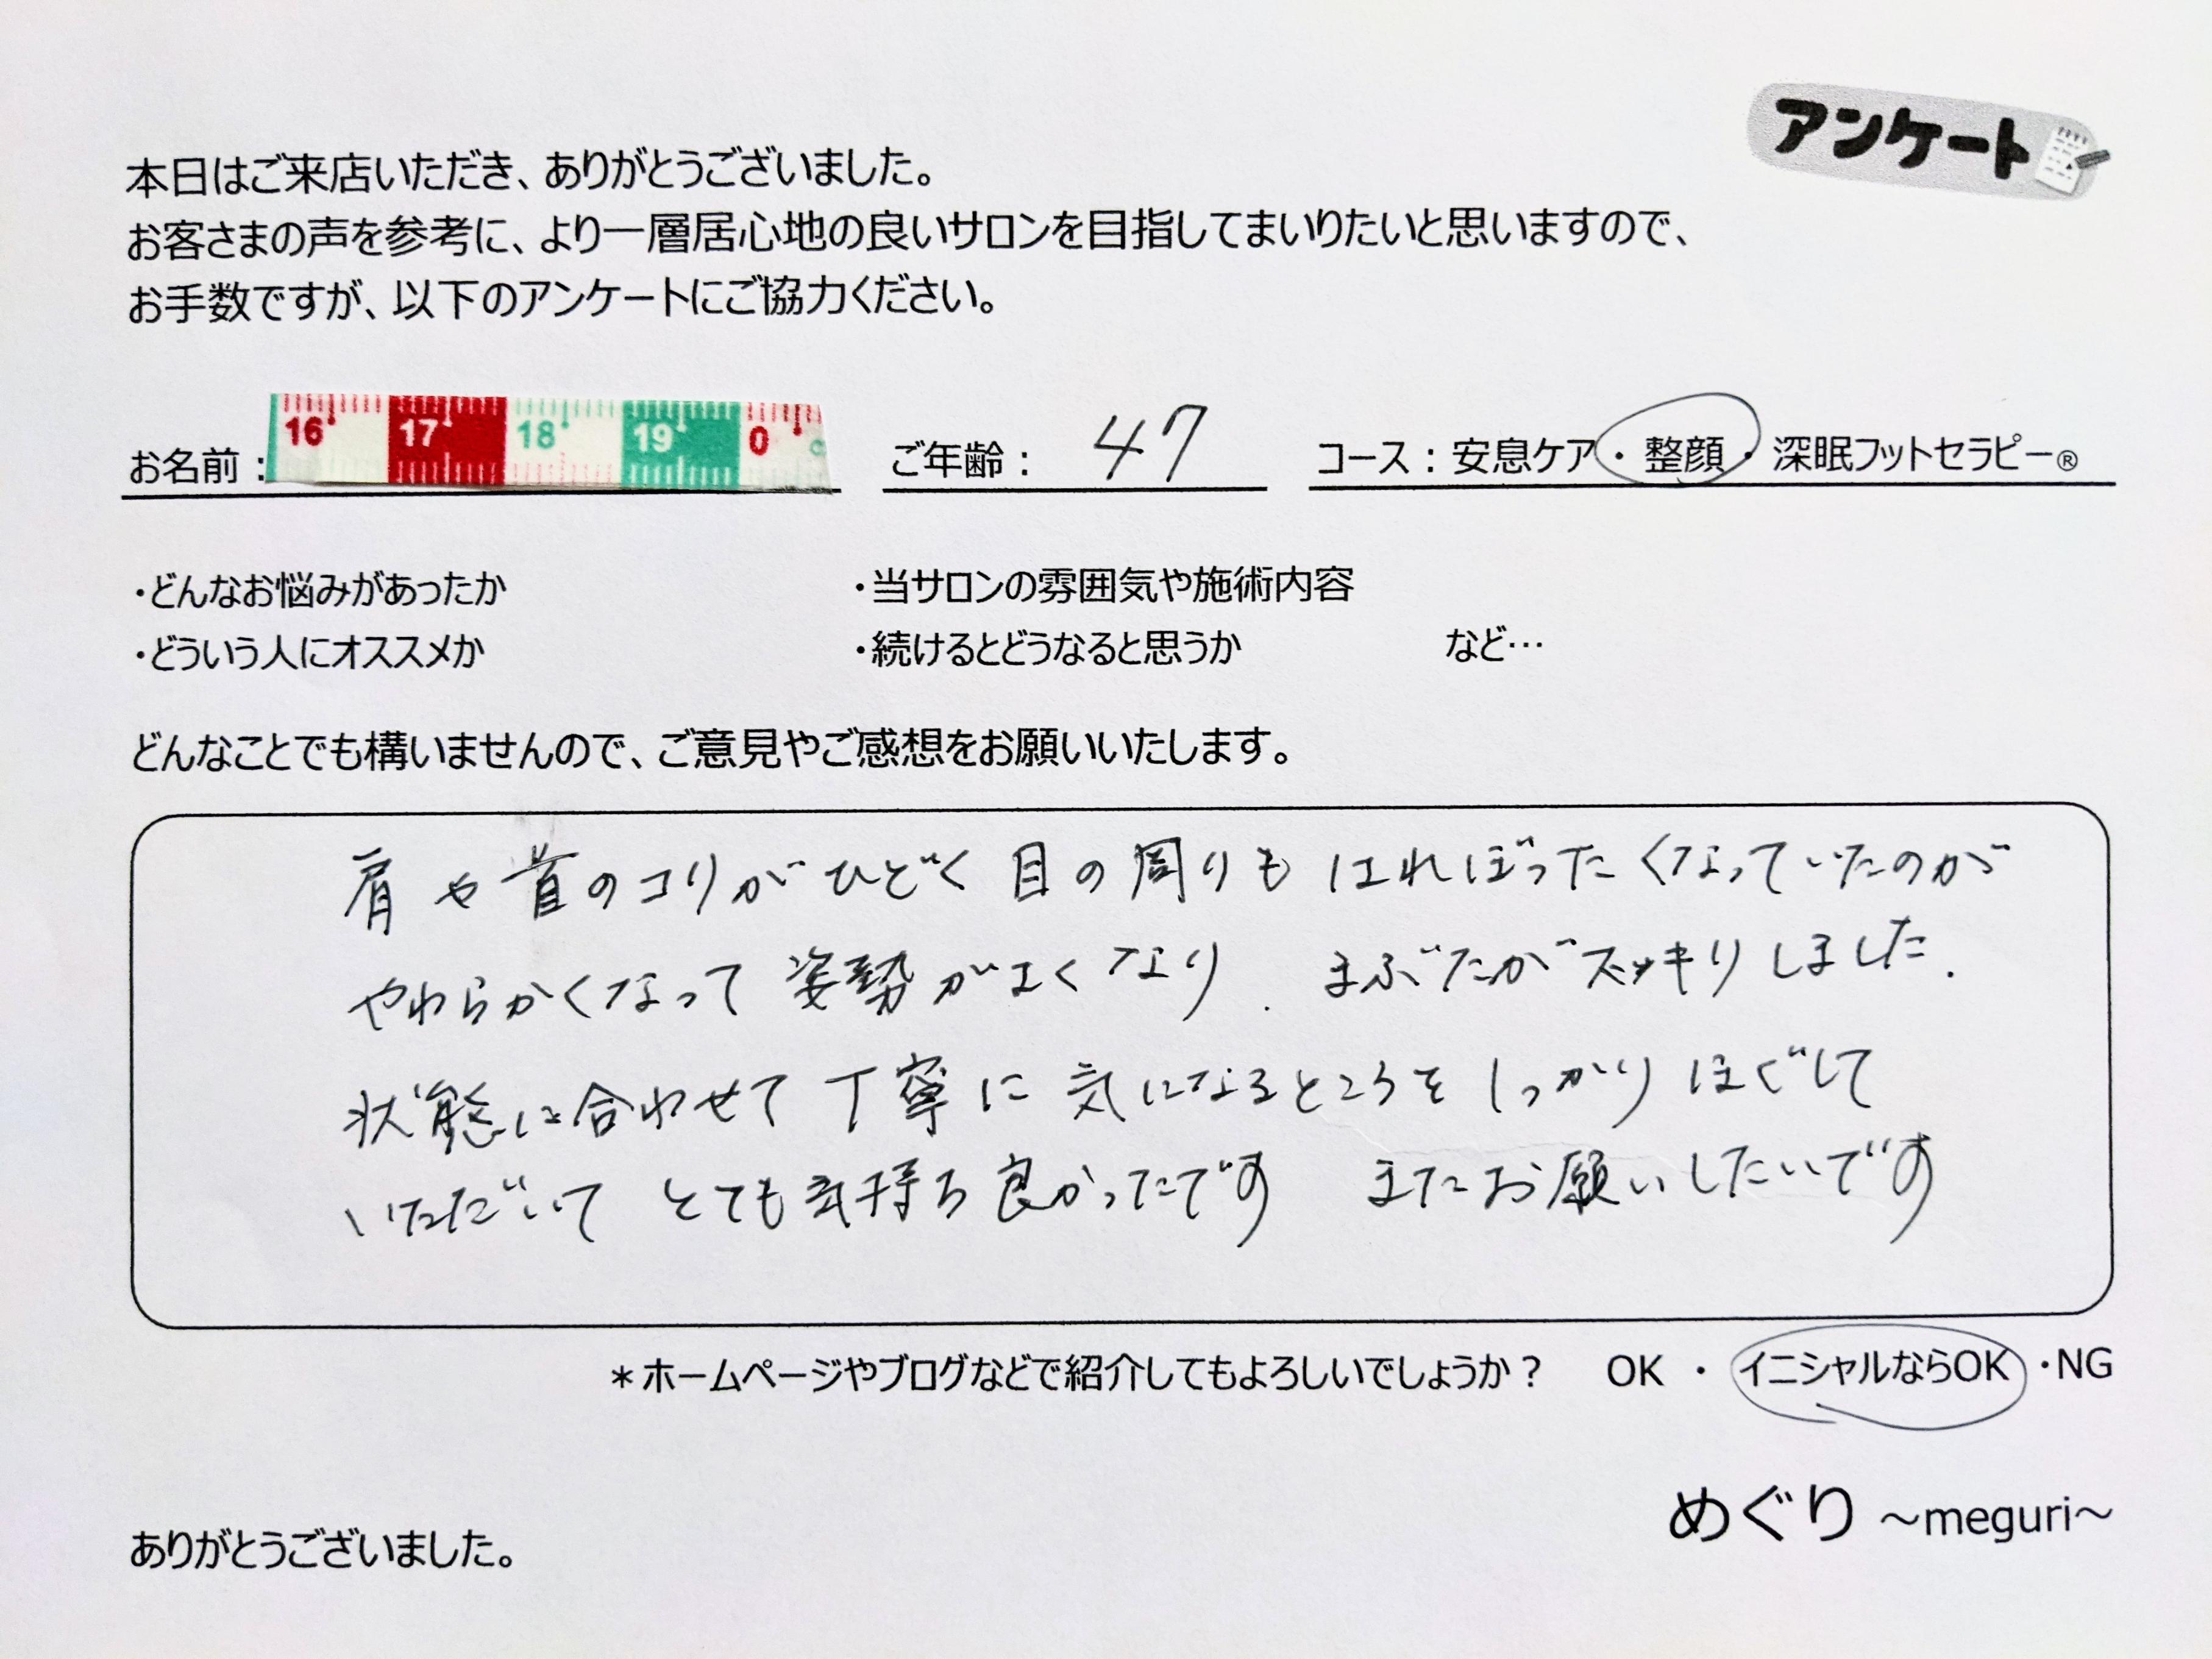 アンケート
本日はご来店いただき、ありがとうございました。
お客さまの声を参考に、より一層居心地の良いサロンを目指してまいりたいと思いますので、
お手数ですが、以下のアンケートにご協力ください。
お名前： 16 17 18 19 0 ご年齢： 47 コース：安息ケア・整顔・深眠フットセラピー®
・どんなお悩みがあったか ・当サロンの雰囲気や施術内容
・どういう人にオススメか ・続けるとどうなると思うか など…
どんなことでも構いませんので、ご意見やご感想をお願いいたします。
肩や首のコリがひどく目の周りもはれぼったくなっていたのが
やわらかくなって姿勢がよくなり、まぶたがスッキリしました.
状態に合わせて丁寧に気になるところをしっかりほぐして
いただいてとても気持ち良かったです またお願いしたいです
＊ホームページやブログなどで紹介してもよろしいでしょうか？ OK ・ イニシャルならOK ・NG
めぐり ～meguri～
ありがとうございました。